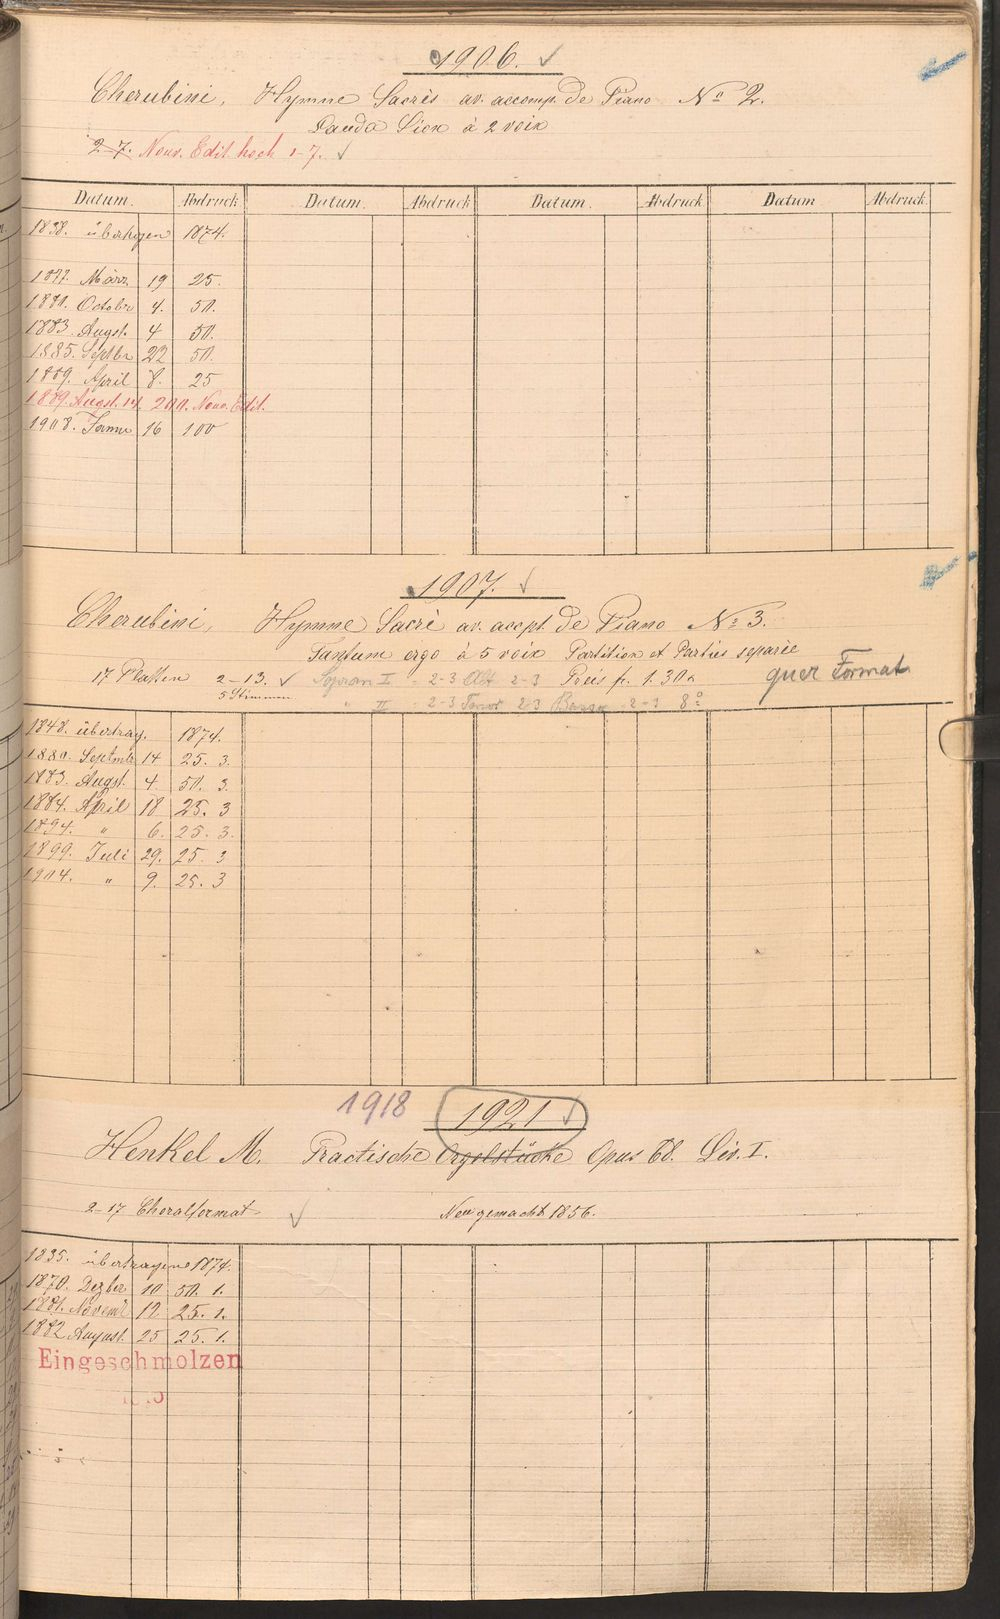 1906. ✓
Cherubini, Hymne Sacrès av. accomp. de Piano No 2.
Lauda Sion à 2 voix
2-7. Nouv. Edit. hoch 1-7. ✓
Datum. Abdruck Datum. Abdruck Datum. Abdruck Datum Abdruck.
1838. übertragen 1874.
1877. März 19 25.
1881. October 4. 50.
1883. Augst. 4 50.
1885. Septbr 22 50.
1889. April 8. 25
1889. Augst. 14. 200. Nouv. Edit.
1908. Januar 16 100
1907. ✓
Cherubini, Hymne Sacrè av. accpt. de Piano No 3.
Tantum ergo à 5 voix Partition et Parties separèe
17 Platten 2-13. ✓ Sopran I - 2-3 Alt 2-3 Preis fr. 1.30 quer Format
5 Stimmen " II - 2-3 Tenor 2-3 Basso 2-3 8o
1848. übertrag. 1874.
1880. Septmbr 14 25. 3.
1883. Augst. 4. 50. 3.
1884. April 18 25. 3
1894. " 6. 25. 3.
1899. Juli 29. 25. 3
1904. " 9. 25. 3
1918 1921 ✓
Henkel M. Practische Orgelstücke Opus 68. Liv. I.
2-17 Choralformat ✓ Neu gemacht 1856.
1835. übertragen 1874.
1870. Dezber 10 50. 1.
1881. Novembr 12 25. 1.
1882 August. 25 25. 1.
Eingeschmolzen